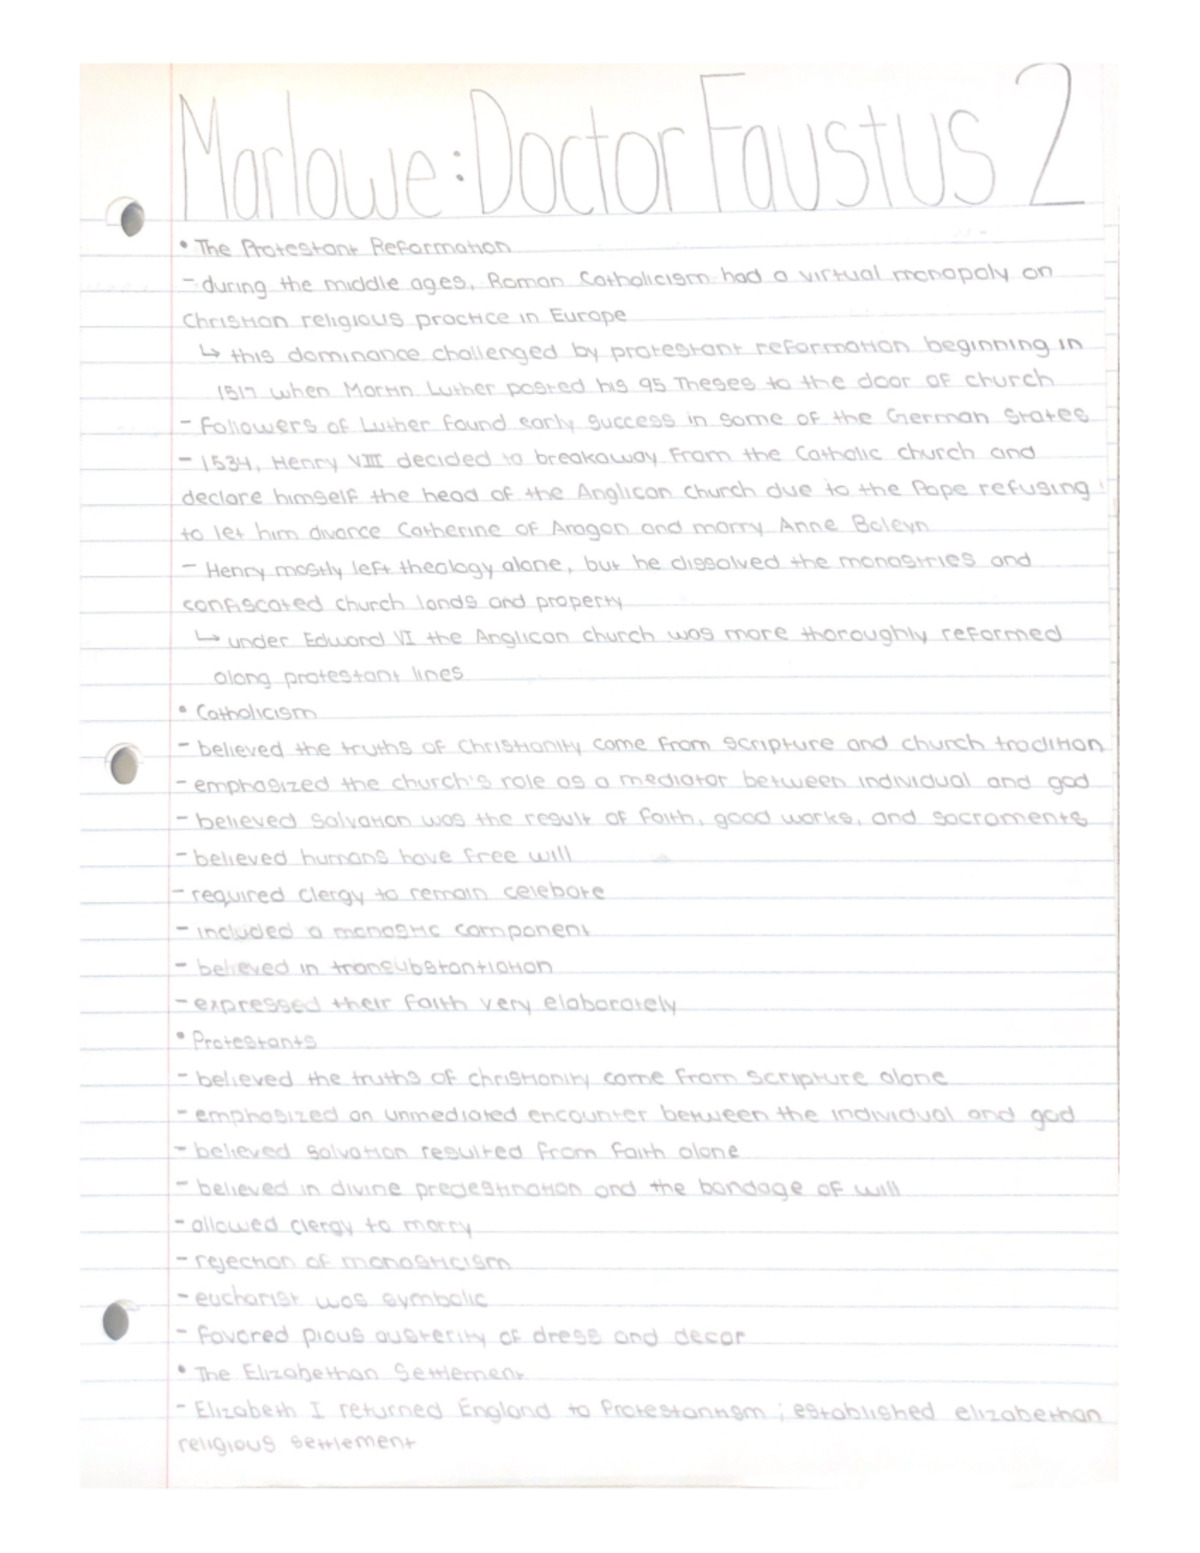 Marlowe: Doctor Faustus 2
• The Protestant Reformation
- during the middle ages, Roman Catholicism had a virtual monopoly on
Christian religious practice in Europe
↳ this dominance challenged by protestant reformation beginning in
1517 when Martin Luther posted his 95 Theses to the door of church
- Followers of Luther found early success in some of the German States
- 1534, Henry VIII decided to breakaway from the Catholic church and
declare himself the head of the Anglican church due to the Pope refusing
to let him divorce Catherine of Aragon and marry Anne Boleyn
- Henry mostly left theology alone, but he dissolved the monastries and
confiscated church lands and property
↳ under Edward VI the Anglican church was more thoroughly reformed
along protestant lines
• Catholicism
- believed the truths of Christianity come from scripture and church tradition
- emphasized the church's role as a mediator between individual and god
- believed salvation was the result of faith, good works, and sacraments
- believed humans have free will
- required clergy to remain celebate
- included a monastic component
- believed in transubstantiation
- expressed their faith very elaborately
• Protestants
- believed the truths of christianity come from scripture alone
- emphasized an unmediated encounter between the individual and god
- believed salvation resulted from faith alone
- believed in divine predestination and the bondage of will
- allowed clergy to marry
- rejection of monasticism
- eucharist was symbolic
- favored pious austerity of dress and decor
• The Elizabethan Settlement
- Elizabeth I returned England to Protestantism ; established elizabethan
religious settlement